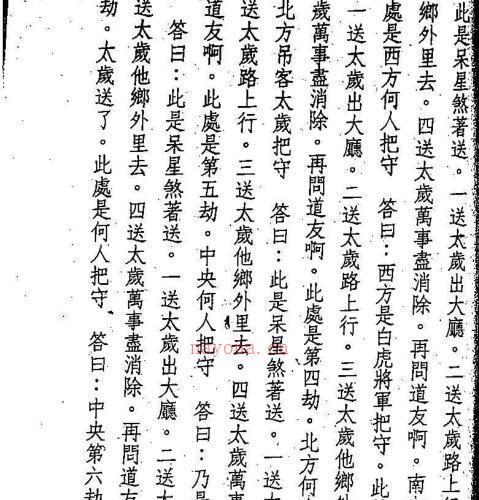 此是呆星煞著送。一送太歲出大廳。二送太歲路上
鄉外里去。四送太歲萬事盡消除。再問道友啊。南
處是西方何人把守 答曰:西方是白虎將軍把守。此
一送太歲出大廳。二送太歲路上行。三送太歲他鄉
歲萬事盡消除。再問道友啊。此處是第四劫。北方何
北方吊客太歲把守 答曰:此是呆星煞著送。一送太
送太歲路上行。三送太歲他鄉外里去。四送太歲萬事
道友啊。此處是第五劫。中央何人把守 答曰:乃是
答曰:此是呆星煞著送。一送太歲出大廳。二送太
送太歲他鄉外里去。四送太歲萬事盡消除。再問道友
劫。太歲送了。此處是何人把守 答曰:中央第六劫